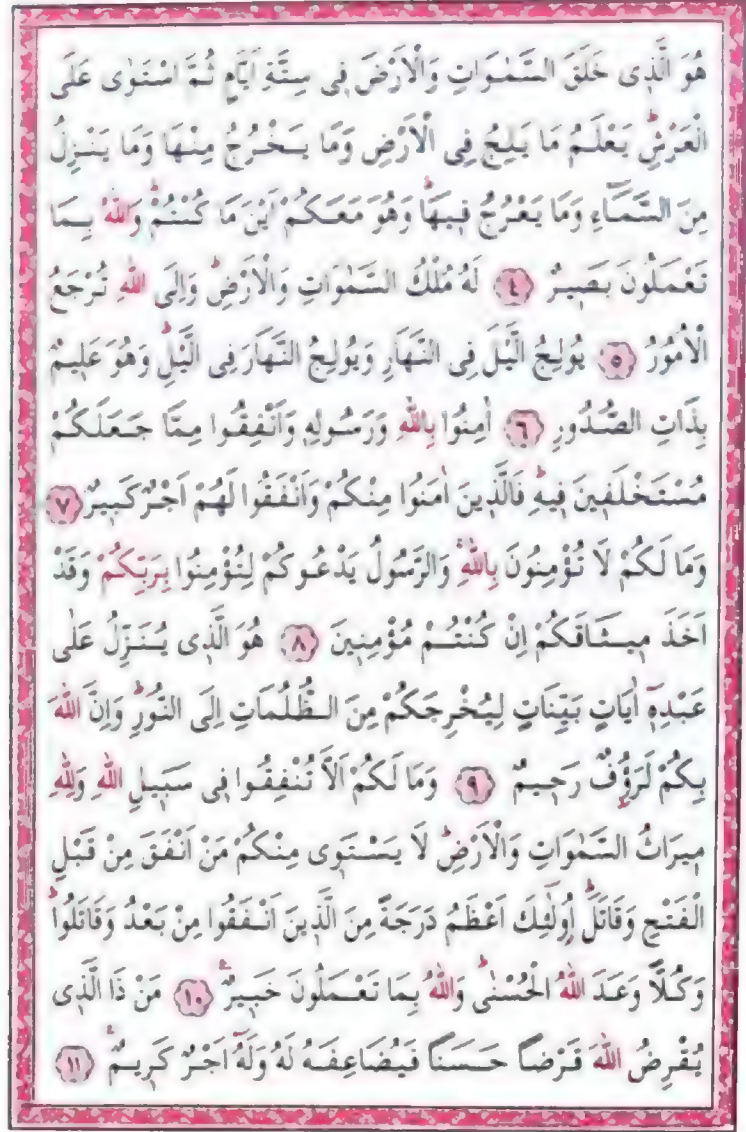 هُوَ الَّذ۪ى خَلَقَ السَّمٰوَاتِ وَالْاَرْضَ ف۪ى سِتَّةِ اَيَّامٍ ثُمَّ اسْتَوٰى عَلَى
الْعَرْشِۜ يَعْلَمُ مَا يَلِجُ فِى الْاَرْضِ وَمَا يَخْرُجُ مِنْهَا وَمَا يَنْزِلُ
مِنَ السَّمَٓاءِ وَمَا يَعْرُجُ ف۪يهَاۜ وَهُوَ مَعَكُمْ اَيْنَ مَا كُنْتُمْۜ وَاللّٰهُ بِمَا
تَعْمَلُونَ بَص۪يرٌ ﴿٤﴾ لَهُ مُلْكُ السَّمٰوَاتِ وَالْاَرْضِۜ وَاِلَى اللّٰهِ تُرْجَعُ
الْاُمُورُ ﴿٥﴾ يُولِجُ الَّيْلَ فِى النَّهَارِ وَيُولِجُ النَّهَارَ فِى الَّيْلِۜ وَهُوَ عَل۪يمٌ
بِذَاتِ الصُّدُورِ ﴿٦﴾ اٰمِنُوا بِاللّٰهِ وَرَسُولِه۪ وَاَنْفِقُوا مِمَّا جَعَلَكُمْ
مُسْتَخْلَف۪ينَ ف۪يهِۜ فَالَّذ۪ينَ اٰمَنُوا مِنْكُمْ وَاَنْفَقُوا لَهُمْ اَجْرٌ كَب۪يرٌ ﴿٧﴾
وَمَا لَكُمْ لَا تُؤْمِنُونَ بِاللّٰهِۚ وَالرَّسُولُ يَدْعُوكُمْ لِتُؤْمِنُوا بِرَبِّكُمْ وَقَدْ
اَخَذَ م۪يثَاقَكُمْ اِنْ كُنْتُمْ مُؤْمِن۪ينَ ﴿٨﴾ هُوَ الَّذ۪ى يُنَزِّلُ عَلٰى
عَبْدِه۪ٓ اٰيَاتٍ بَيِّنَاتٍ لِيُخْرِجَكُمْ مِنَ الظُّلُمَاتِ اِلَى النُّورِۜ وَاِنَّ اللّٰهَ
بِكُمْ لَرَؤُ۫فٌ رَح۪يمٌ ﴿٩﴾ وَمَا لَكُمْ اَلَّا تُنْفِقُوا ف۪ى سَب۪يلِ اللّٰهِ وَلِلّٰهِ
م۪يرَاثُ السَّمٰوَاتِ وَالْاَرْضِۜ لَا يَسْتَو۪ى مِنْكُمْ مَنْ اَنْفَقَ مِنْ قَبْلِ
الْفَتْحِ وَقَاتَلَۜ اُو۬لٰٓئِكَ اَعْظَمُ دَرَجَةً مِنَ الَّذ۪ينَ اَنْفَقُوا مِنْ بَعْدُ وَقَاتَلُواۜ
وَكُلًّا وَعَدَ اللّٰهُ الْحُسْنٰىۜ وَاللّٰهُ بِمَا تَعْمَلُونَ خَب۪يرٌ۟ ﴿١٠﴾ مَنْ ذَا الَّذ۪ى
يُقْرِضُ اللّٰهَ قَرْضًا حَسَنًا فَيُضَاعِفَهُ لَهُ وَلَهُٓ اَجْرٌ كَر۪يمٌۚ ﴿١١﴾